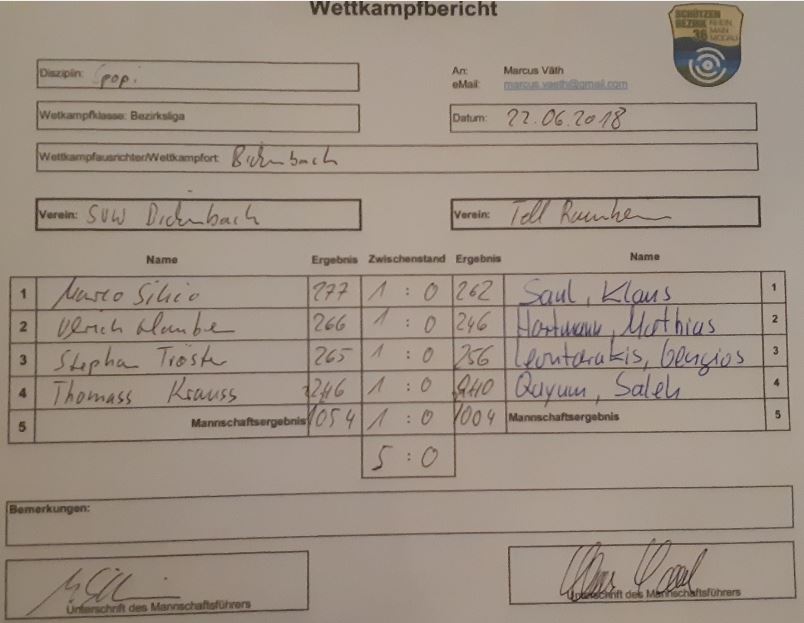 Wettkampfbericht
SCHÜTZEN
BEZIRK RHEIN
36 MAIN
MODAU
Disziplin: Spopi
An: Marcus Väth
eMail: marcus.vaeth@gmail.com
Wetkampfklasse: Bezirksliga
Datum: 22.06.2018
Wettkampfausrichter/Wettkampfort:
Verein: SVW
Verein: Tell
Name Ergebnis Zwischenstand Ergebnis Name
1 Marco Silicio 277 1 : 0 262 Saul, Klaus 1
2 Ulrich 266 1 : 0 246 Hartmann, Mathias 2
3 Stephan Tröster 265 1 : 0 256 Leontarakis, 3
4 Thomass Krauss 246 1 : 0 240 Qayum, Saleh 4
5 Mannschaftsergebnis 1054 1 : 0 1004 Mannschaftsergebnis 5
5 : 0
Bemerkungen:
Unterschrift des Mannschaftsführers
Unterschrift des Mannschaftsführers